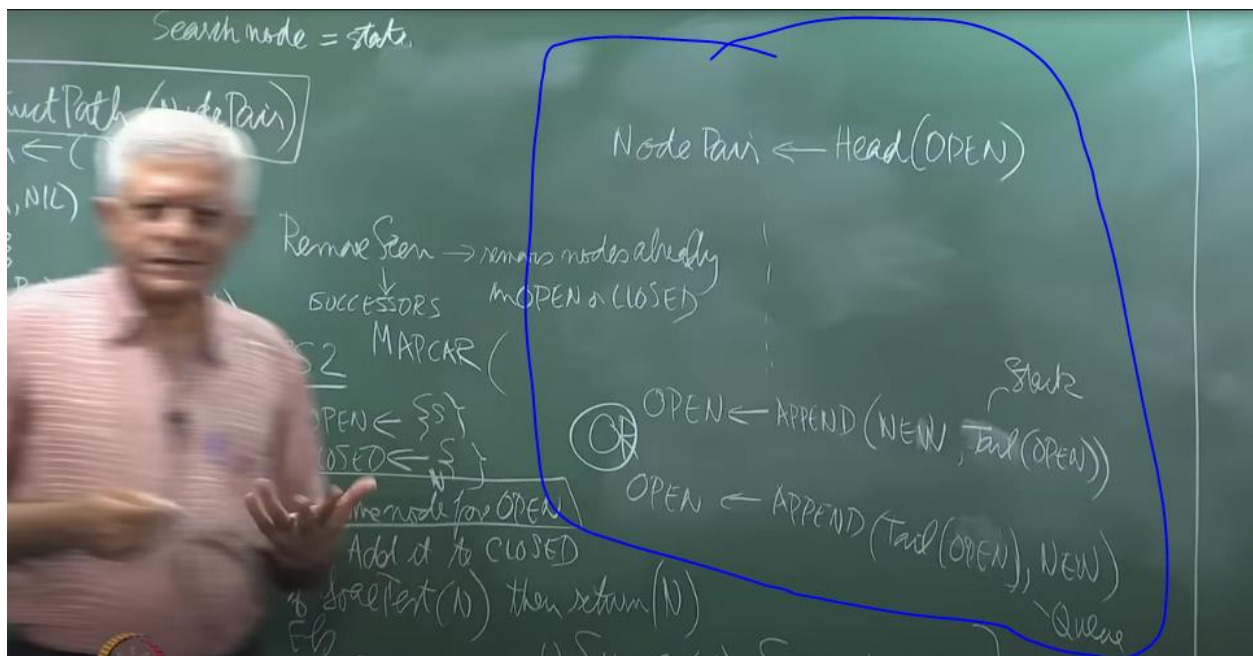 Search node = state
uctPath (NodePair)
← (
, NIL)
RemoveSeen → removes nodes already
in OPEN or CLOSED
SUCCESSORS
MAPCAR (
S2
OPEN ← {S}
OSED ← { }
me node from OPEN
N
Add it to CLOSED
if GoalTest(N) then return (N)
Els
NodePair ← Head(OPEN)
Stack
OR
OPEN ← APPEND(NEW, Tail(OPEN))
OPEN ← APPEND(Tail(OPEN), NEW)
Queue